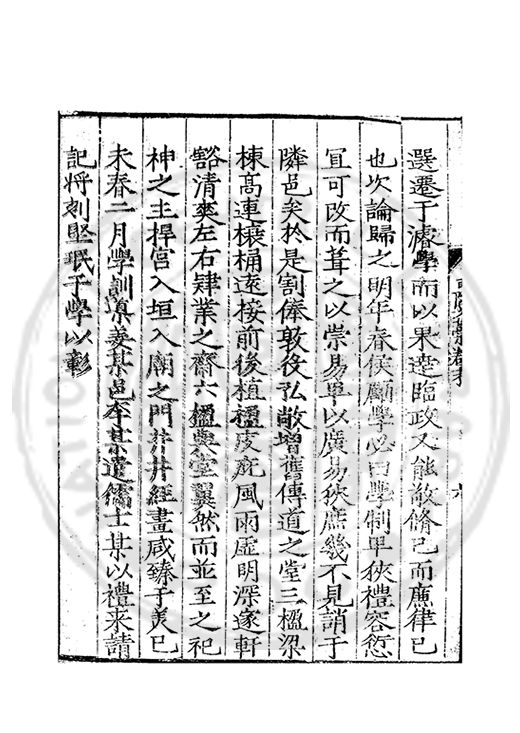 選遷于濬學而以果達臨政又能敬脩己而廉律己
也次論歸之明年春侯願學必曰學制卑狹禮容愆
冝可改而葺之以崇易卑以廣易狹庶幾不見誚于
隣邑矣於是割俸敦役弘敞增舊傳道之堂三楹梁
棟髙連榱桷遠接前後植楹庋庇風雨虛明深邃軒
豁清爽左右肄業之齋六楹與堂翼然而並至之祀
神之主捍宫入垣入廟之門井井經畫咸臻于美已
未春二月學訓導姜某邑宰某遣儒士某以禮来請
記将刻堅珉于學以彰